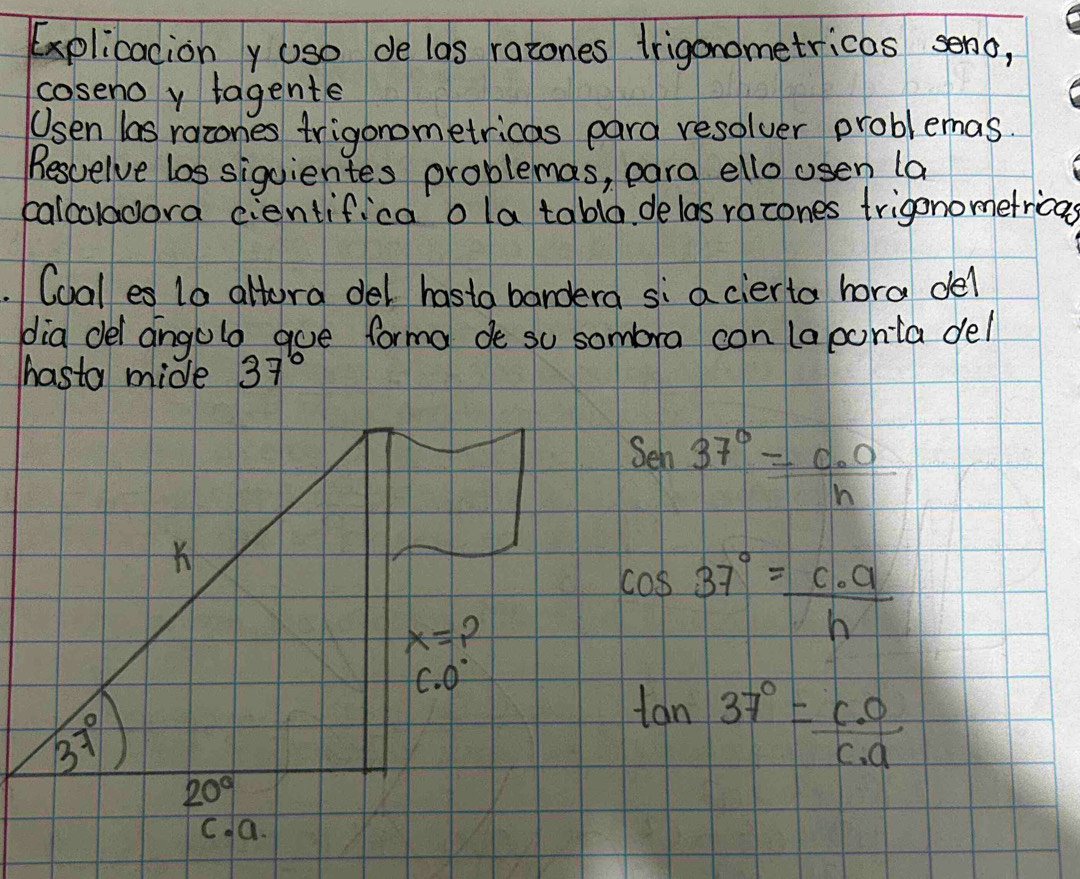 Explicación y uso de las razones trigonometricas seno,
coseno y tagente
Usen las razones trigonometricas para resolver problemas.
Resuelve los siguientes problemas, para ello usen la
calculadora cientifica o la tabla de las razones trigonometricas
. Cual es la altura del hasta bandera si a cierta hora del
dia del ángulo que forma de su sombra con la punta del
hasta mide 37°
Sen 37° = c.o
h
K
cos 37° = c.a
h
x=?
c.o
tan 37° = c.o
c.a
37°
20°
c.a.